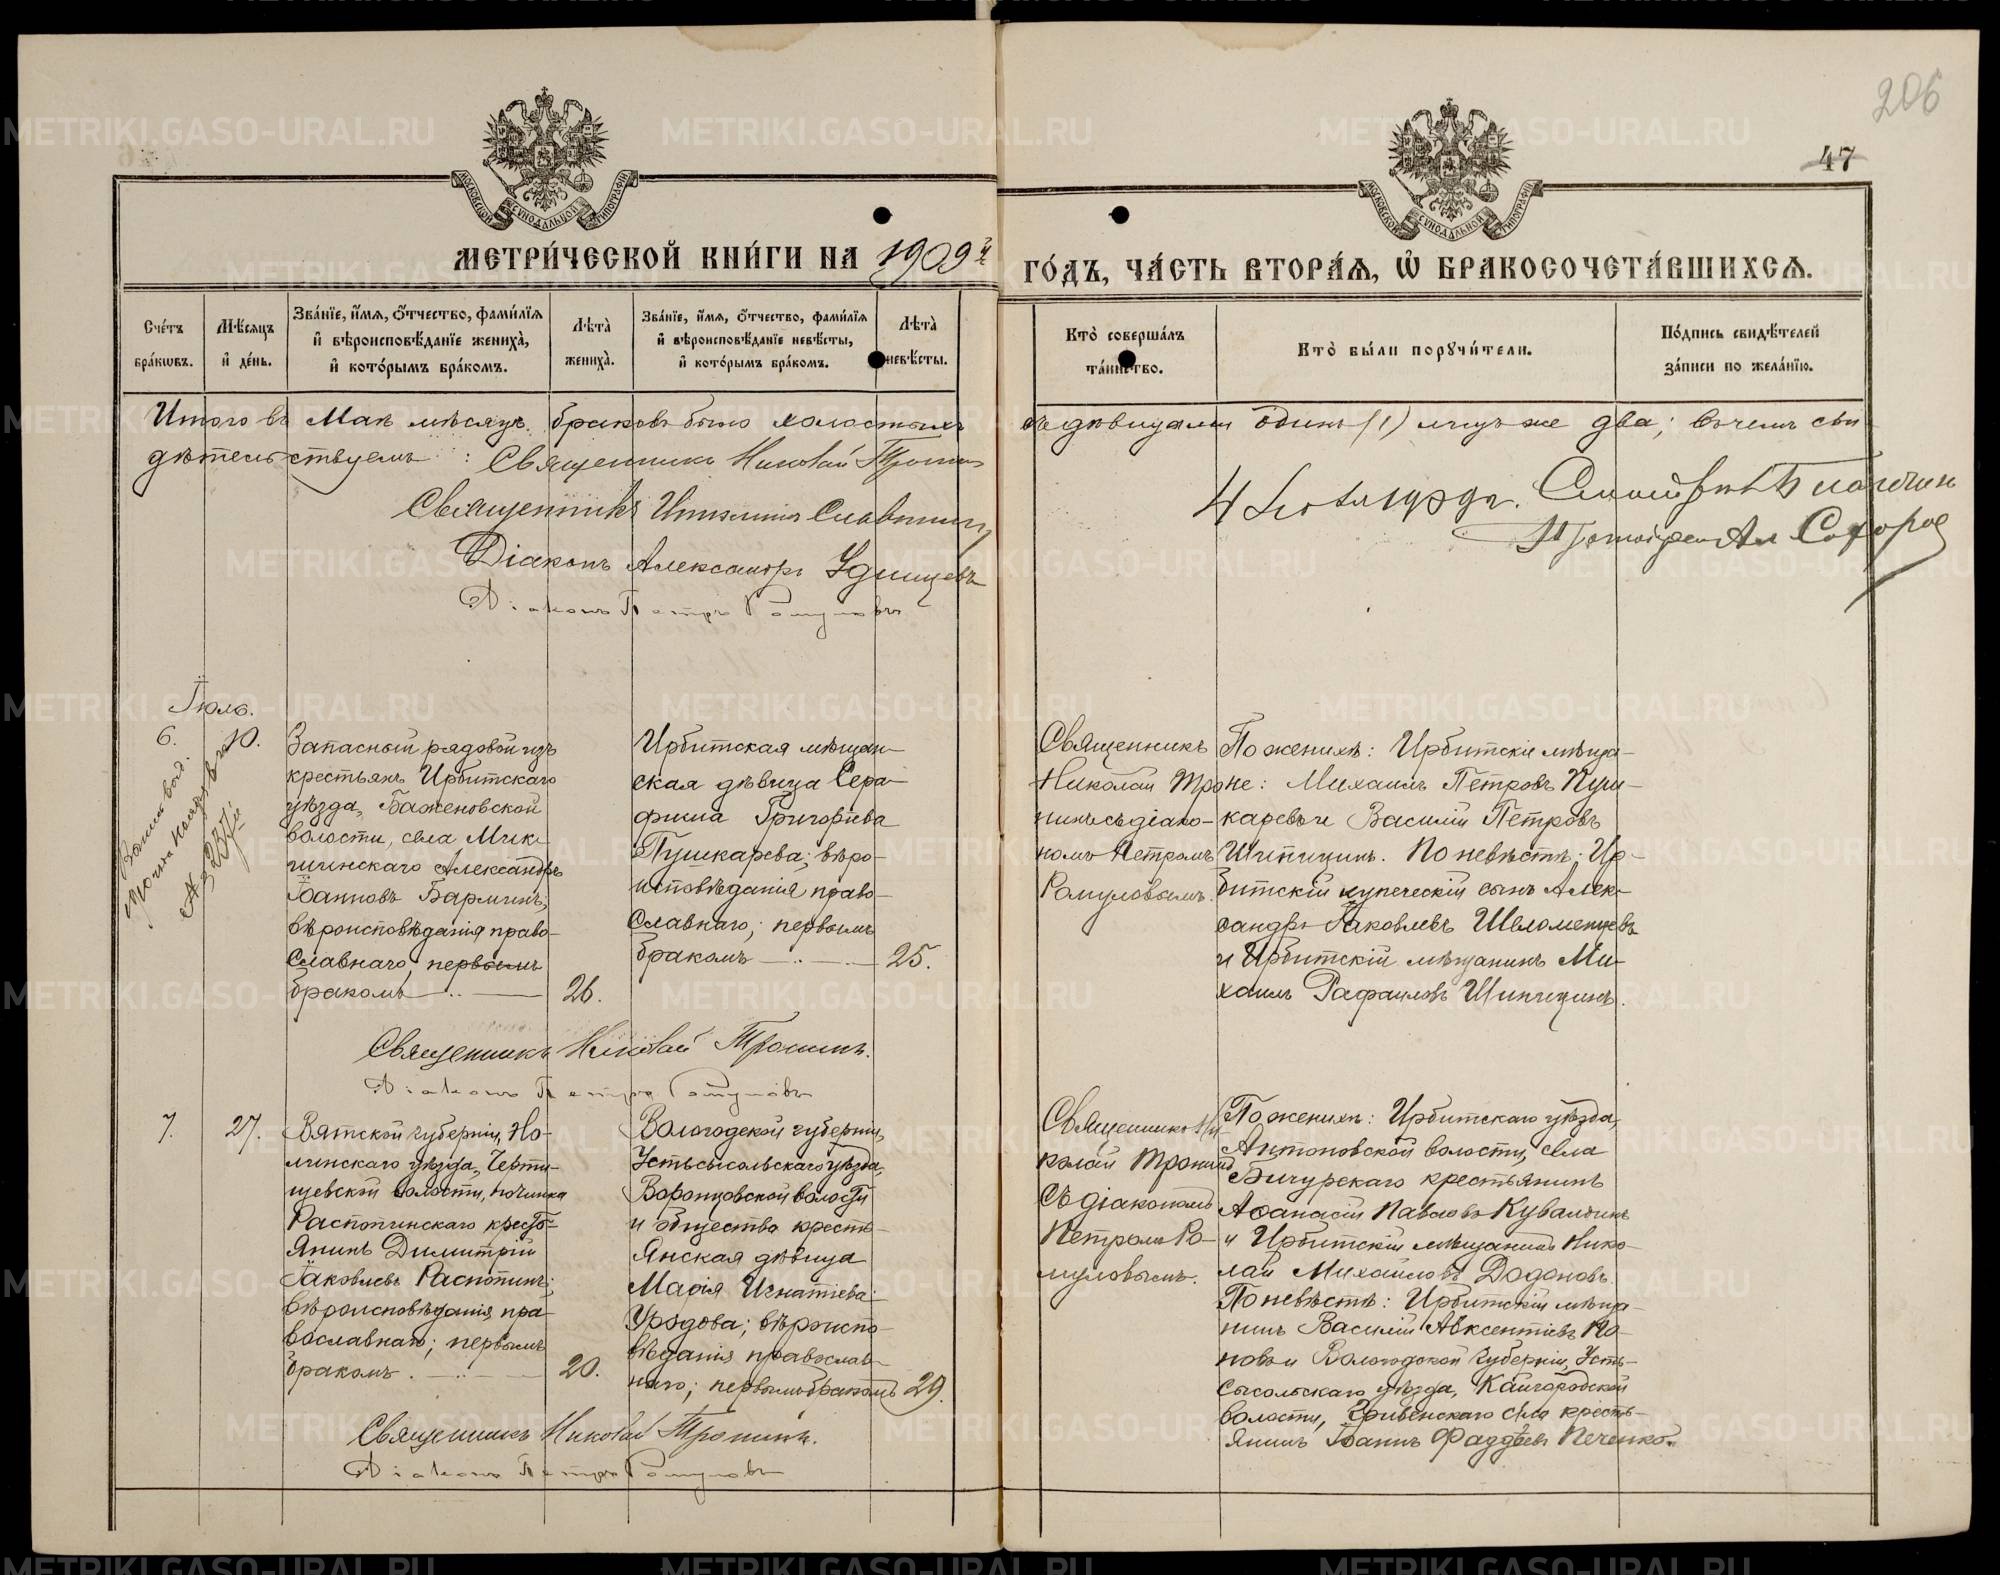 206
47
МОСКОВСКОЙ СѴНОДАЛЬНОЙ ТИПОГРАФІИ
МОСКОВСКОЙ СѴНОДАЛЬНОЙ ТИПОГРАФІИ
МЕТРИ́ЧЕСКОЙ КНИ́ГИ НА 1909й
ГО́ДЪ, ЧА́СТЬ ВТОРА́Ѧ, Ѿ БРАКОСОЧЕТА́ВШИХСѦ.
Сче́тъ
бра́кѡвъ.
Мѣ́сѧцъ
и҆ де́нь.
Зва́нїе, и҆́мѧ, ѻ҆́тчество, фами́лїѧ
и҆ вѣроисповѣ́данїе жениха̀,
и҆ кото́рымъ бра́комъ.
Лѣ́та̀
жениха̀.
Зва́нїе, и҆́мѧ, ѻ҆́тчество, фами́лїѧ
и҆ вѣроисповѣ́данїе невѣ́сты,
и҆ кото́рымъ бра́комъ.
Лѣ́та̀
невѣ́сты.
Кто̀ соверша́лъ
та́инство.
Кто̀ бы́ли порꙋчи́тели.
По́дпись свидѣ́телей
за́писи по жела́нїю.
Итого въ Маѣ мѣсяцѣ браковъ было холостыхъ
съ дѣвицами одинъ (1) лицъ же два; въ чемъ сви
дѣтельствуемъ: Священникъ Николай Тронинъ
Священникъ Славнинъ
Діаконъ Александръ Удинцевъ
Діаконъ Петръ Ромуловъ
Іюль.
6.
10.
№ 237
Запасный рядовой изъ
крестьянъ Ирбитскаго
уѣзда, Баженовской
волости, села
Александръ
Іоанновъ Бармин
вѣроисповѣданія право-
славнаго, первымъ
бракомъ
26.
Ирбитская мѣщан-
ская дѣвица Сера-
фима Григоріева
Пушкарева; вѣро-
исповѣданія право-
славнаго; первымъ
бракомъ
25.
Священникъ
Николай Тро-
нинъ съ діако-
номъ Петромъ
Ромуловымъ.
По женихѣ: Ирбитскіе мѣща-
не: Михаилъ Петровъ Пуш-
каревъ и Василій Петровъ
Шипицинъ. По невѣстѣ: Ир-
битскій купеческій сынъ Алек-
сандръ Іаковлевъ Шеломенцевъ
и Ирбитскій мѣщанинъ Ми-
хаилъ Рафаиловъ Шипицинъ.
Священникъ Николай Тронинъ.
Діаконъ Петръ Ромуловъ
7.
27.
Вятской губерніи, Но-
линскаго уѣзда, Черти-
щевской волости, починка
Распопинскаго кресть-
янинъ Димитрій
Іаковлевъ Распопинъ;
вѣроисповѣданія пра-
вославнаго; первымъ
бракомъ.
20.
Вологодской губерніи,
Устьсысольскаго уѣзда,
Воронцовской волости
и общества кресть-
янская дѣвица
Марія Игнатіева
Уродова; вѣроиспо-
вѣданія православ-
наго; первымъ бракомъ
29.
Священникъ Ни-
колай Тронинъ
съ діакономъ
Петромъ Ро-
муловымъ.
По женихѣ: Ирбитскаго уѣзда,
Антоновской волости, села
Бичурскаго крестьянинъ
Аѳанасій Павловъ Кувалдинъ
и Ирбитскій мѣщанинъ Нико-
лай Михайловъ Додоновъ.
По невѣстѣ: Ирбитскій мѣща-
нинъ Василій Авксентіевъ По-
повъ и Вологодской губерніи, Усть-
сысольскаго уѣзда, Кайгородской
волости, Гривенскаго села кресть-
янинъ Іоаннъ Фаддѣевъ
Священникъ Николай Тронинъ.
Діаконъ Петръ Ромуловъ